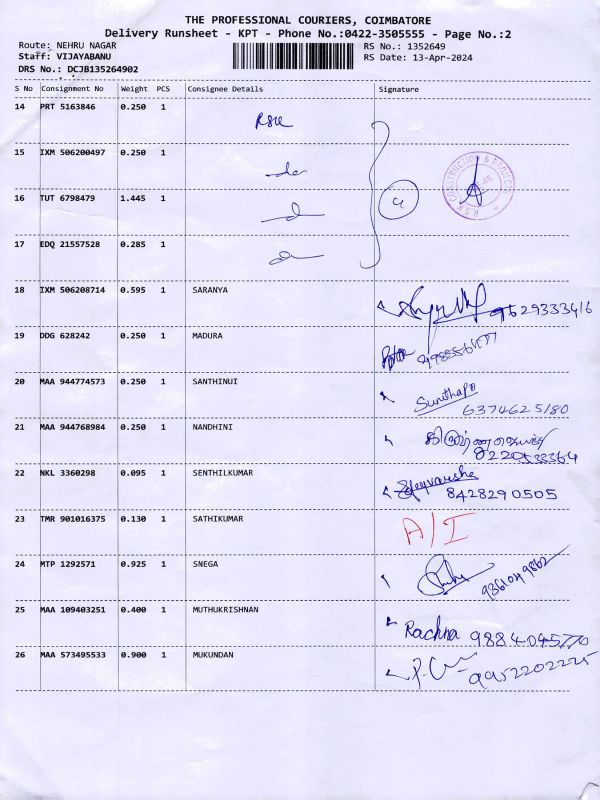 THE PROFESSIONAL COURIERS, COIMBATORE
Delivery Runsheet - KPT - Phone No.:0422-3505555 - Page No.:2
Route: NEHRU NAGAR RS No.: 1352649
Staff: VIJAYABANU RS Date: 13-Apr-2024
DRS No.: DCJB135264902
S No Consignment No Weight PCS Consignee Details Signature
14 PRT 5163846 0.250 1
15 IXM 506200497 0.250 1
16 TUT 6798479 1.445 1
17 EDQ 21557528 0.285 1
R.S.K CONSTRUCTION & PROJECTS
18 IXM 506208714 0.595 1 SARANYA 9629333416
19 DDG 628242 0.250 1 MADURA
20 MAA 944774573 0.250 1 SANTHINUI
6374625180
21 MAA 944768984 0.250 1 NANDHINI
22 NKL 3360298 0.095 1 SENTHILKUMAR
8428290505
23 TMR 901016375 0.130 1 SATHIKUMAR A/I
24 MTP 1292571 0.925 1 SNEGA
25 MAA 109403251 0.400 1 MUTHUKRISHNAN
Rachna 9884045770
26 MAA 573495533 0.900 1 MUKUNDAN 9952202225